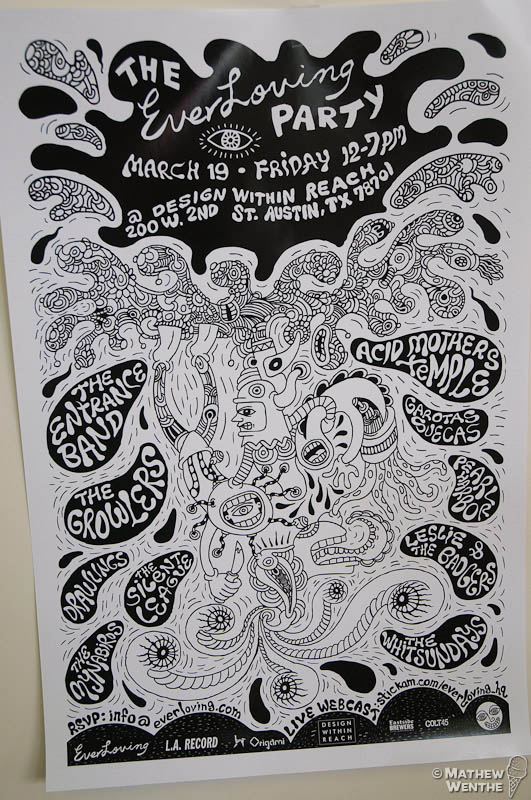 THE
EverLoving
PARTY
MARCH 19 • FRIDAY 12-7PM
@ DESIGN WITHIN REACH
200 W. 2ND ST. AUSTIN, TX 78701
THE
ENTRANCE
BAND
ACID MOTHERS
TEMPLE
GAROTAS
SUECAS
THE
GROWLERS
PEARL
HARBOR
DRAWLINGS
THE
SILENT
LEAGUE
LESLIE &
THE BADGERS
THE
MYNABIRDS
THE
WHITSUNDAYS
RSVP: info@everloving.com
LIVE WEBCAST
stickam.com/everloving_hq
EverLoving
L.A. RECORD
Origami
DESIGN
WITHIN
REACH
Eastside
BREWERS
COLT45
© MATHEW
WENTHE